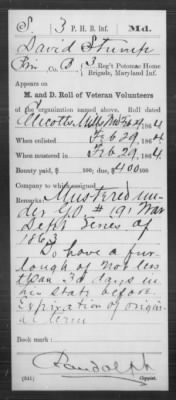 S 3 P. H. B. Inf. Md.
David Stump
Co. B, 3 Reg't Potomac Home
Brigade, Maryland Inf.
Appears on
M. and D. Roll of Veteran Volunteers
of the organization named above. Roll dated
Ellicotts Mills Md Feb 29, 1864
When enlisted Feb 29, 1864
When mustered in Feb 29, 1864
Bounty paid, $ 100; due, $ 400 100
Company to which assigned
Remarks: Mustered un-
der G.O. # 191 War
Dept Series of
1863
To have a fur-
lough of not less
than 30 days in
his state before
Expiration of origin-
al term
Book mark:
Randolph
(341) Copyist.